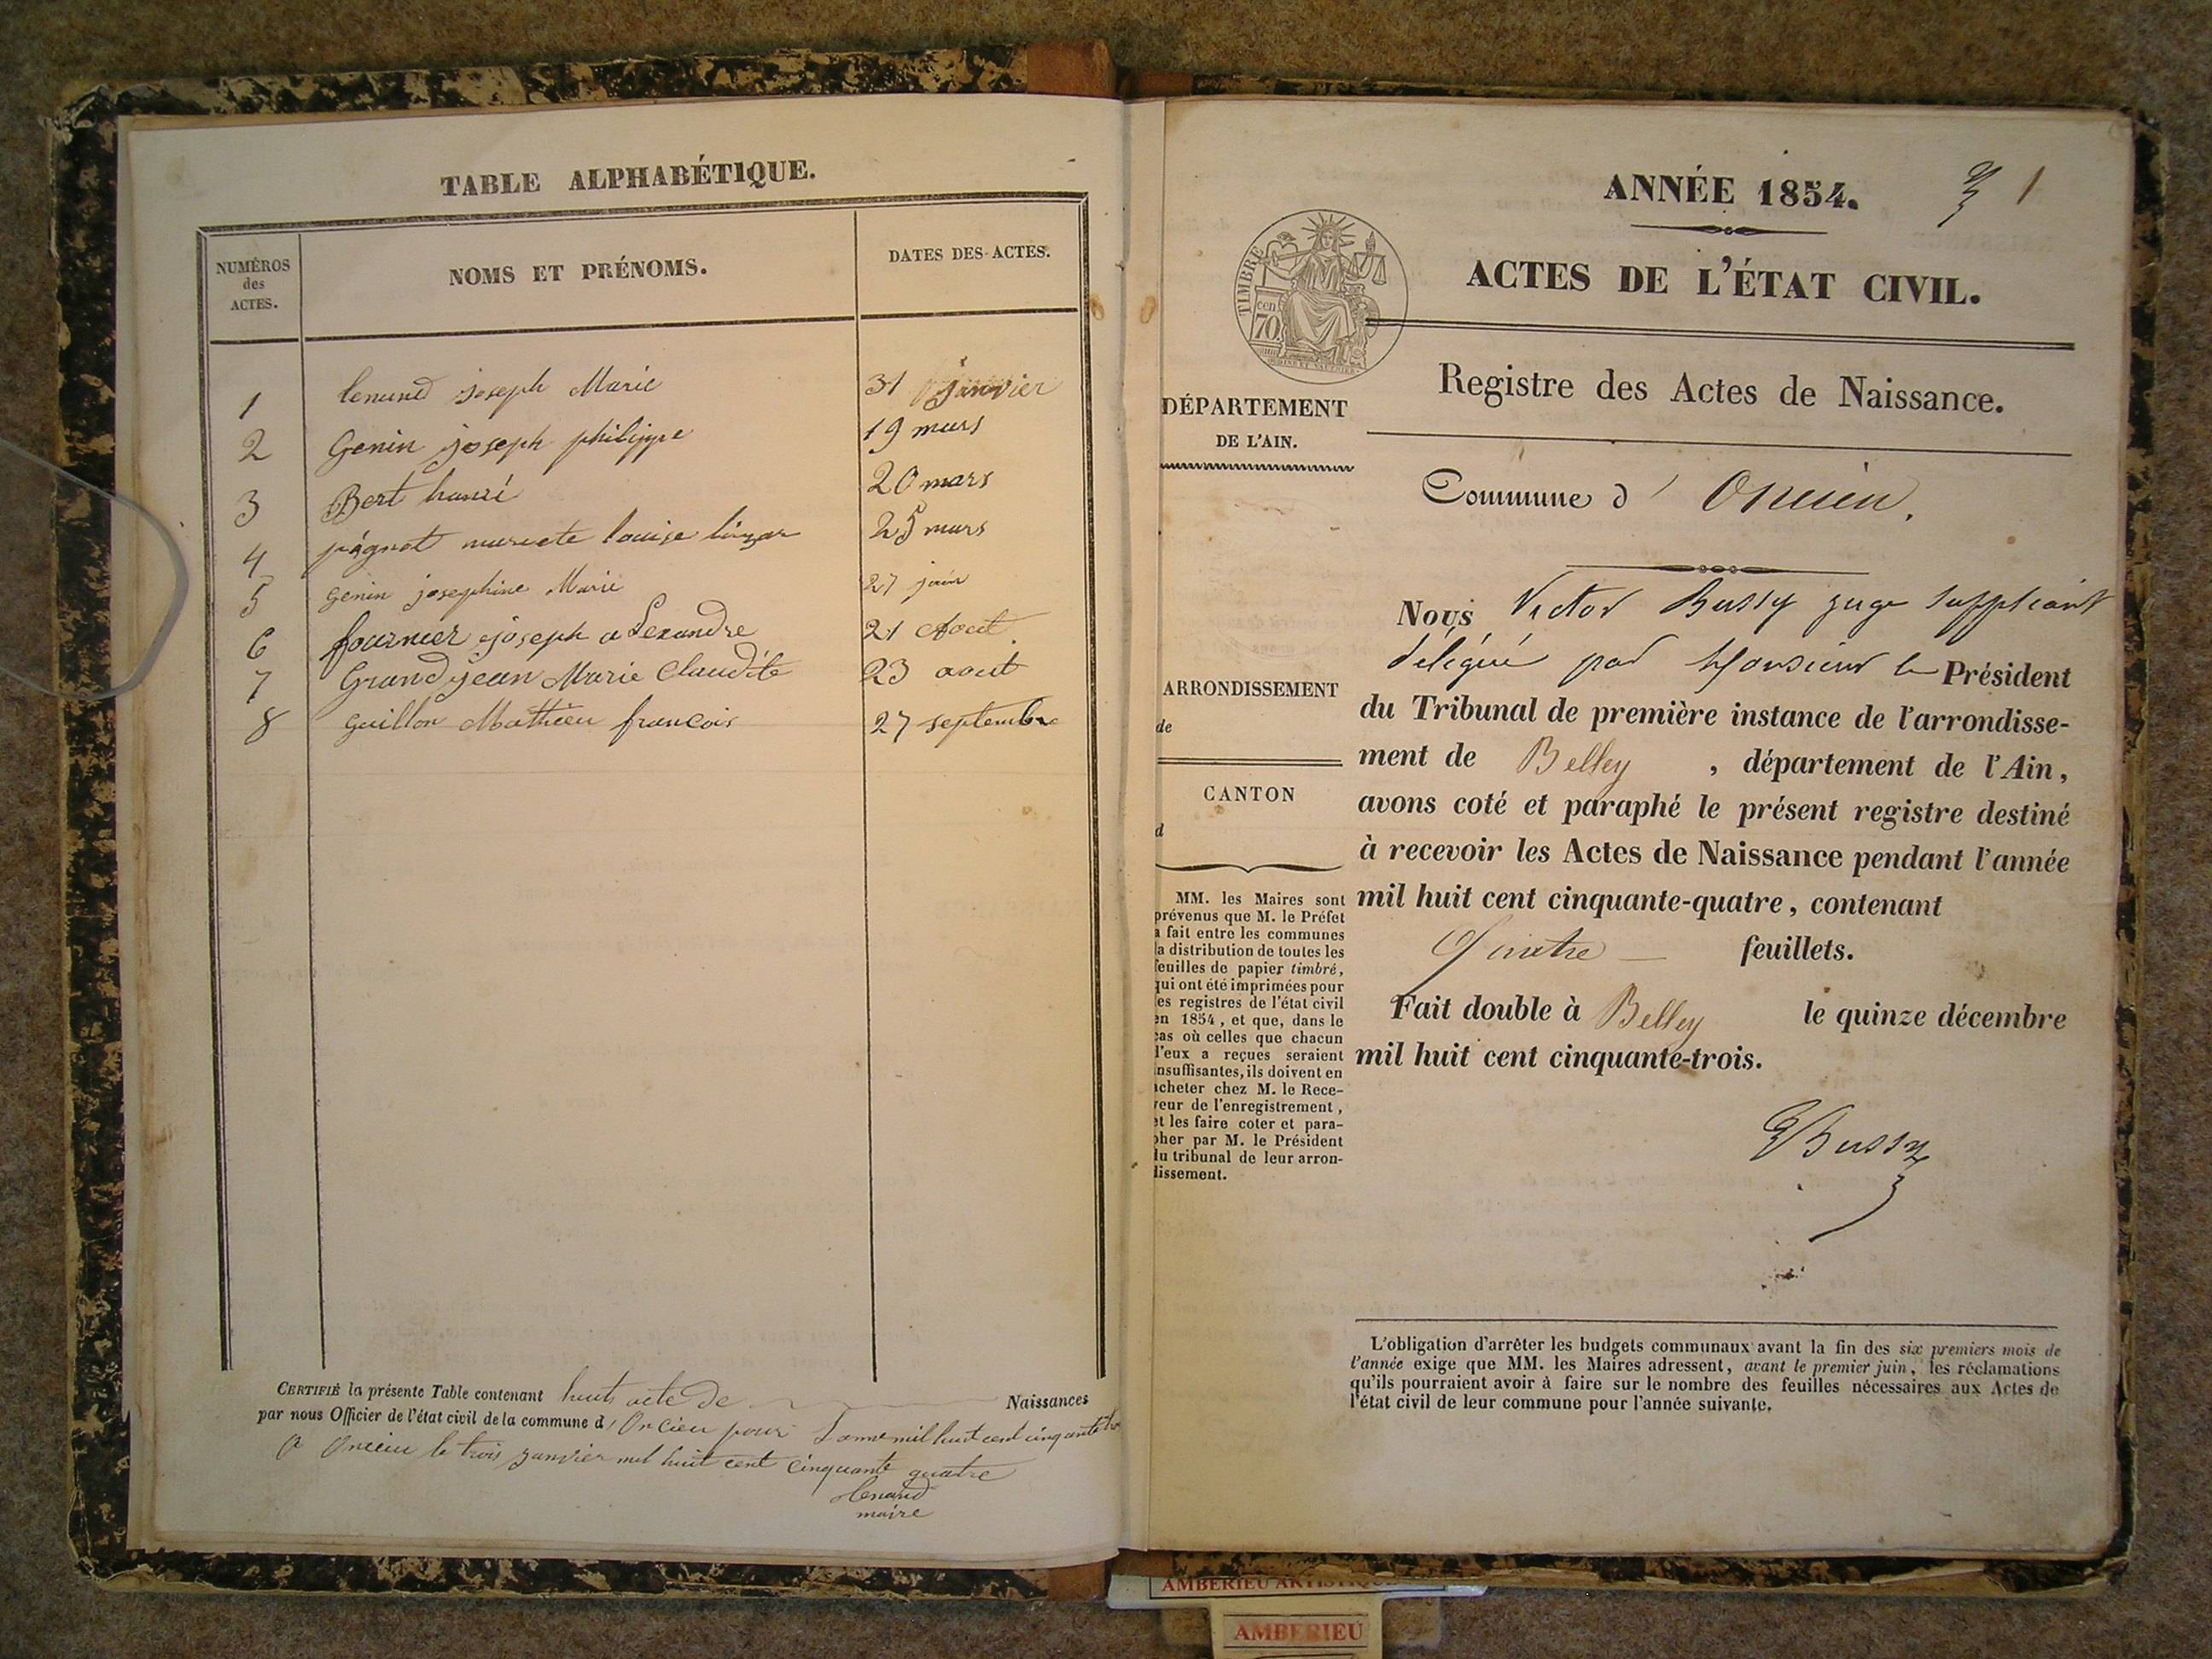 TABLE ALPHABÉTIQUE.
NUMÉROS
des
ACTES.
NOMS ET PRÉNOMS.
DATES DES ACTES.
1 joseph Marie 31 janvier
2 Genin joseph philippe 19 mars
3 Bert 20 mars
4 louise 25 mars
5 genin josephine Marie 27 juin
6 fournier joseph alexandre 21 Aout
7 Grandjean Marie Claudite 23 aout
8 guillon Mathieu francois 27 septembre
CERTIFIÉ la présente Table contenant huit acte de Naissances
par nous Officier de l'état civil de la commune d' Oncieu pour mil huit cent cinquante
a Oncieu le trois janvier mil huit cent cinquante quatre
maire
ANNÉE 1854.
1
ACTES DE L'ÉTAT CIVIL.
TIMBRE
70
cen
Registre des Actes de Naissance.
DÉPARTEMENT
DE L'AIN.
Commune d' Oncieu.
Nous Victor Bussy juge suppléant
délégué par Monsieur le Président
du Tribunal de première instance de l'arrondisse-
ment de Belley, département de l'Ain,
avons coté et paraphé le présent registre destiné
à recevoir les Actes de Naissance pendant l'année
mil huit cent cinquante-quatre, contenant
Quatre — feuillets.
Fait double à Belley le quinze décembre
mil huit cent cinquante-trois.
Bussy
ARRONDISSEMENT
de
CANTON
d
MM. les Maires sont
prévenus que M. le Préfet
a fait entre les communes
la distribution de toutes les
feuilles de papier timbré,
qui ont été imprimées pour
les registres de l'état civil
en 1854, et que, dans le
cas où celles que chacun
d'eux a reçues seraient
insuffisantes, ils doivent en
acheter chez M. le Rece-
veur de l'enregistrement,
et les faire coter et para-
pher par M. le Président
du tribunal de leur arron-
dissement.
L'obligation d'arrêter les budgets communaux avant la fin des six premiers mois de
l'année exige que MM. les Maires adressent, avant le premier juin, les réclamations
qu'ils pourraient avoir à faire sur le nombre des feuilles nécessaires aux Actes de
l'état civil de leur commune pour l'année suivante.
AMBERIEU
AMBERIEU